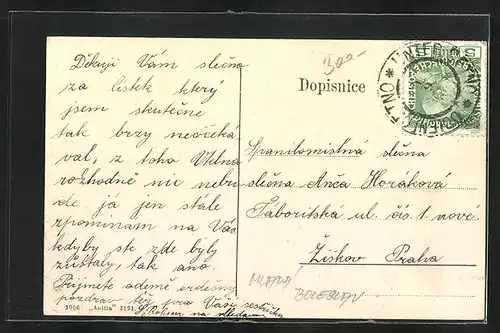 Děkuji Vám slečno
za lístek který
jsem skutečně
tak brzy neočeká
val, z toho
rozhodně nic nebu
de já jen stále
zpomínám na Vás
kdyby ste zde byly
zůstaly, tak ano.
Přijmete odemě srdečný
pozdrav též pro Vaší sestřičku
S Bohem na shledanou
1906 3191.
300-
Dopisnice
slečna
slečna Anča Horáková
Táboritská ul. čís. 1 nové
Žiskov Praha
MLADÁ
BOLESLAV